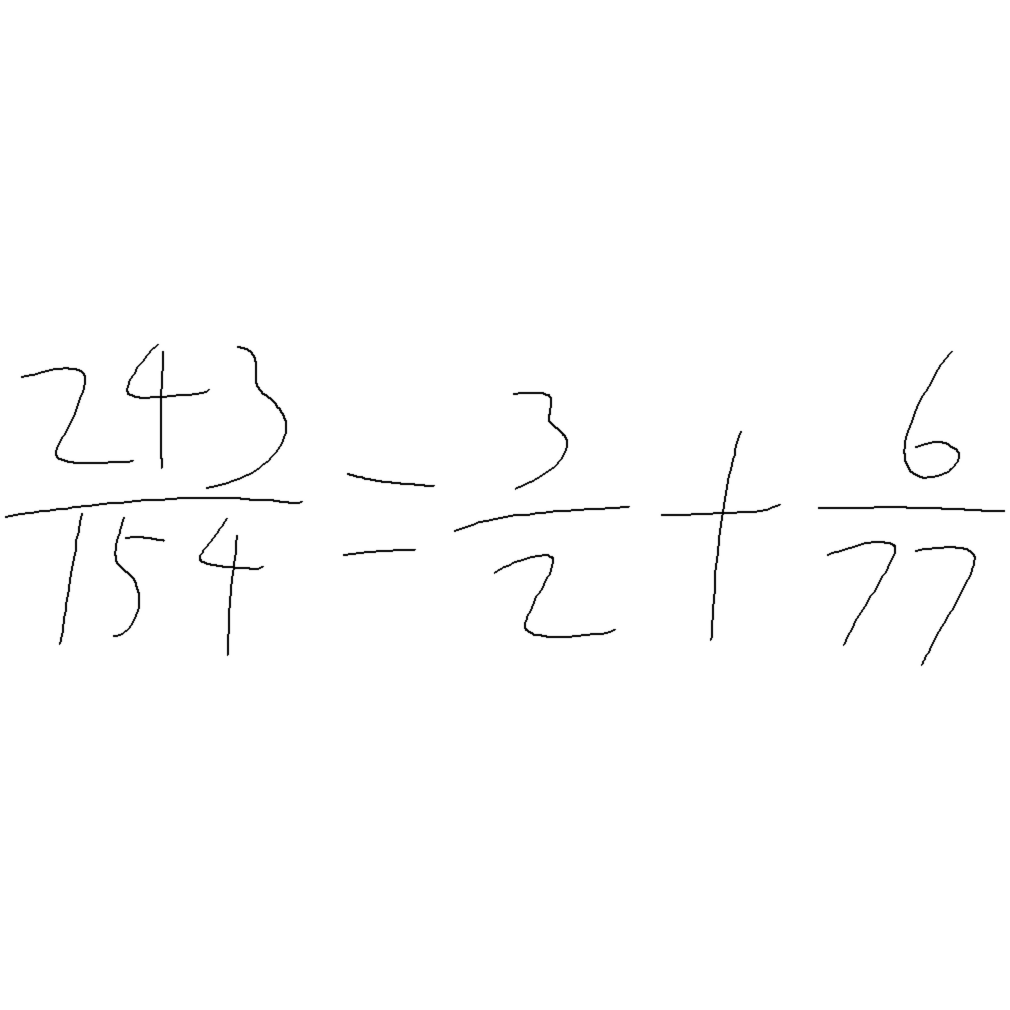 243/154 = 3/2 + 6/77